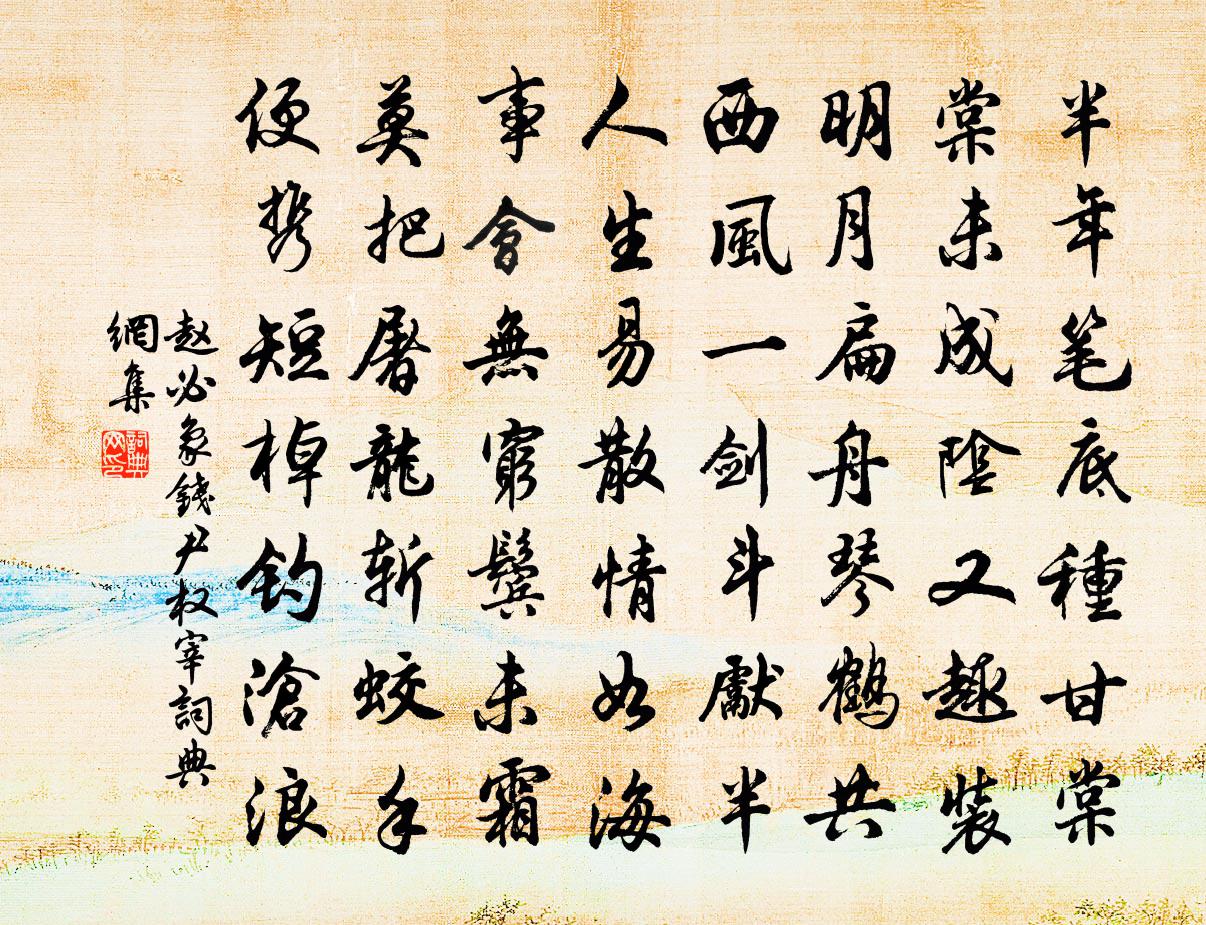 半年笔底種甘棠
棠未成陰又趣装
明月扁舟琴鹤共
西風一剑斗獻半
人生易散情如海
事會無窮鬓未霜
莫把屠龍斩蛟手
便携短棹钓滄浪
赵必象錢尹权宰詞典
網集
詞典
网印